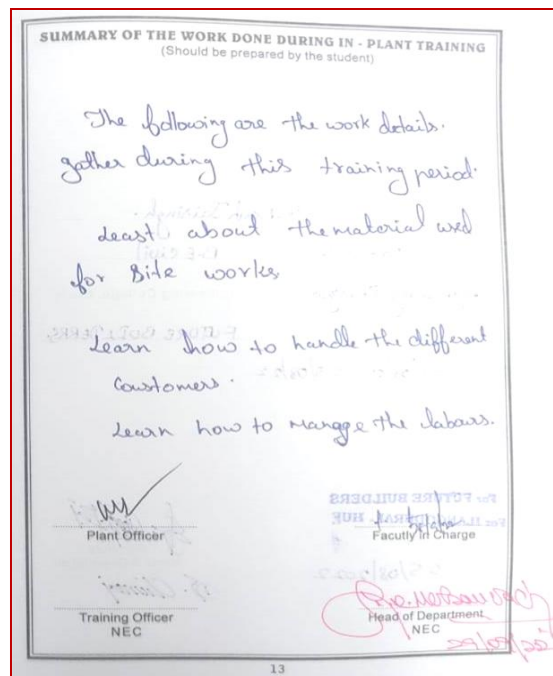 SUMMARY OF THE WORK DONE DURING IN - PLANT TRAINING
(Should be prepared by the student)
The following are the work details.
gather during this training period.
Least about the material used
for site works
Learn how to handle the different
Coustomers.
Learn how to mangge the labours.
Plant Officer
Facutly in Charge
Training Officer
NEC
Head of Department
NEC
13